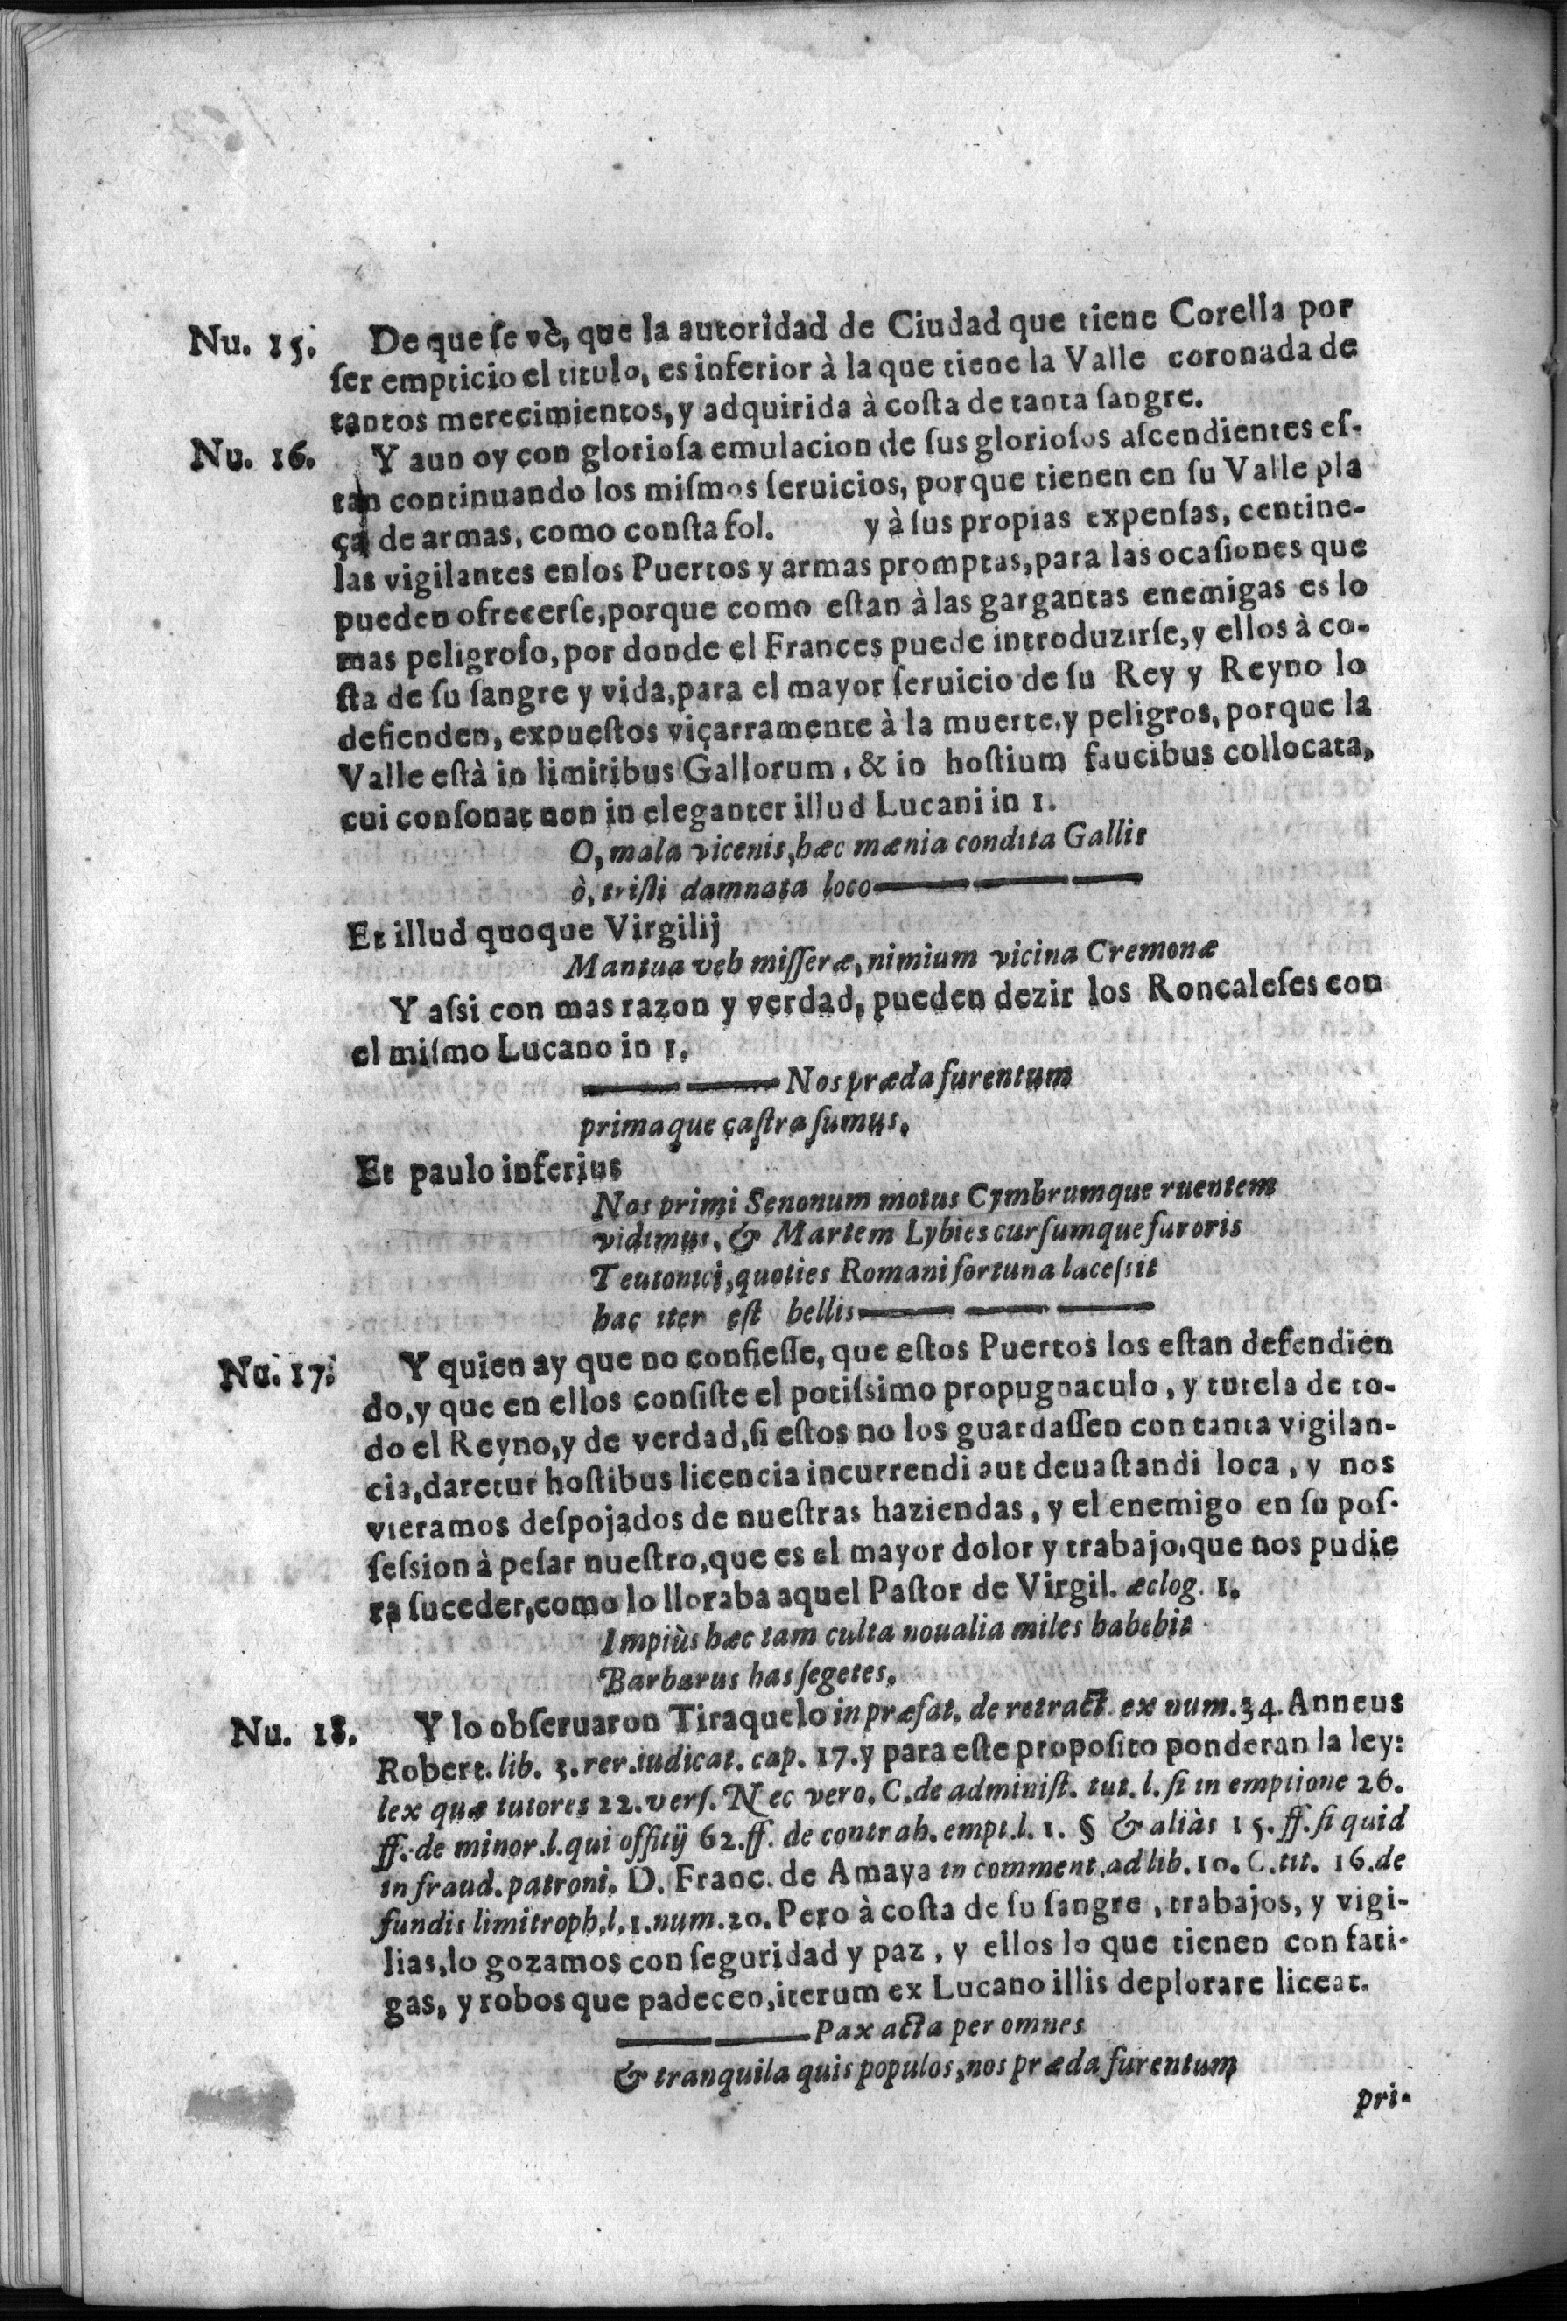 Nu. 15. De que ſe vè, que la autoridad de Ciudad que tiene Corella por
ſer empticio el titulo, es inferior à la que tiene la Valle coronada de
tantos merecimientos, y adquirida à coſta de tanta ſangre.
Nu. 16. Y aun oy con glorioſa emulacion de ſus glorioſos aſcendientes eſ-
tan continuando los miſmos ſeruicios, porque tienen en ſu Valle pla
ça de armas, como conſta fol. y à ſus propias expenſas, centine-
las vigilantes enlos Puertos y armas promptas, para las ocaſiones que
pueden ofrecerſe, porque como eſtan à las gargantas enemigas es lo
mas peligroſo, por donde el Frances puede introduzirſe, y ellos à co-
ſta de ſu ſangre y vida, para el mayor ſeruicio de ſu Rey y Reyno lo
defienden, expueſtos viçarramente à la muerte, y peligros, porque la
Valle eſtà in limitibus Gallorum, & in hoſtium faucibus collocata,
cui conſonat non in eleganter illud Lucani in 1.
O, mala vicenis, hæc mænia condita Gallis
ò, triſti damnata loco
Et illud quoque Virgilij
Mantua veh miſſeræ, nimium vicina Cremonæ
Y aſsi con mas razon y verdad, pueden dezir los Roncaleſes con
el miſmo Lucano in 1.
Nos præda furentum
primaque caſtra ſumus.
Et paulo inferius
Nos primi Senonum motus Cymbrumque ruentem
vidimus, & Martem Lybies curſumque furoris
Teutonici, quoties Romani fortuna laceſsit
hac iter eſt bellis
Nu. 17. Y quien ay que no confieſſe, que eſtos Puertos los eſtan defendien
do, y que en ellos conſiſte el potiſsimo propugnaculo, y tutela de to-
do el Reyno, y de verdad, ſi eſtos no los guardaſſen con tanta vigilan-
cia, daretur hoſtibus licencia incurrendi aut deuaſtandi loca, y nos
vieramos deſpojados de nueſtras haziendas, y el enemigo en ſu poſ-
ſeſsion à peſar nueſtro, que es el mayor dolor y trabajo, que nos pudie
ra ſuceder, como lo lloraba aquel Paſtor de Virgil. æclog. 1.
Impiùs hæc tam culta noualia miles habebit
Barbarus has ſegetes.
Nu. 18. Y lo obſeruaron Tiraquelo in præfat. de retract. ex num. 34. Anneus
Robert. lib. 3. rer. iudicat. cap. 17. y para eſte propoſito ponderan la ley:
lex quæ tutores 22. verſ. Nec vero, C. de adminiſt. tut. l. ſi in emptione 26.
ff. de minor. l. qui offitij 62. ff. de contrah. empt. l. 1. § & aliàs 15. ff. ſi quid
in fraud. patroni. D. Franc. de Amaya in comment. ad lib. 10. C. tit. 16. de
fundis limitroph. l. 1. num. 20. Pero à coſta de ſu ſangre, trabajos, y vigi-
lias, lo gozamos con ſeguridad y paz, y ellos lo que tienen con fati-
gas, y robos que padecen, iterum ex Lucano illis deplorare liceat.
Pax acta per omnes
& tranquila quis populos, nos præda furentum
pri-